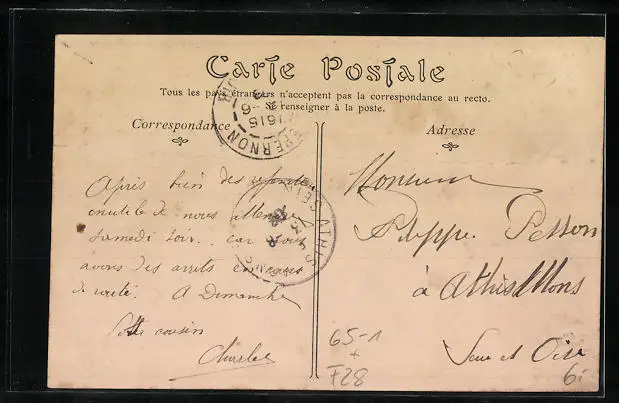 Carte Postale
Tous les pays étrangers n'acceptent pas la correspondance au recto.
Se renseigner à la poste.
Correspondance
Adresse
EPERNON
1615
6
Après bien des
inutile de nous
Samedi soir.. car nous
avons des arrets en cours
de route. A Dimanche
Votre cousin
Charles
Monsieur
Philippe
à Athis Mons
Seine et Oise
ATHIS
65-1
+
F28
6.-